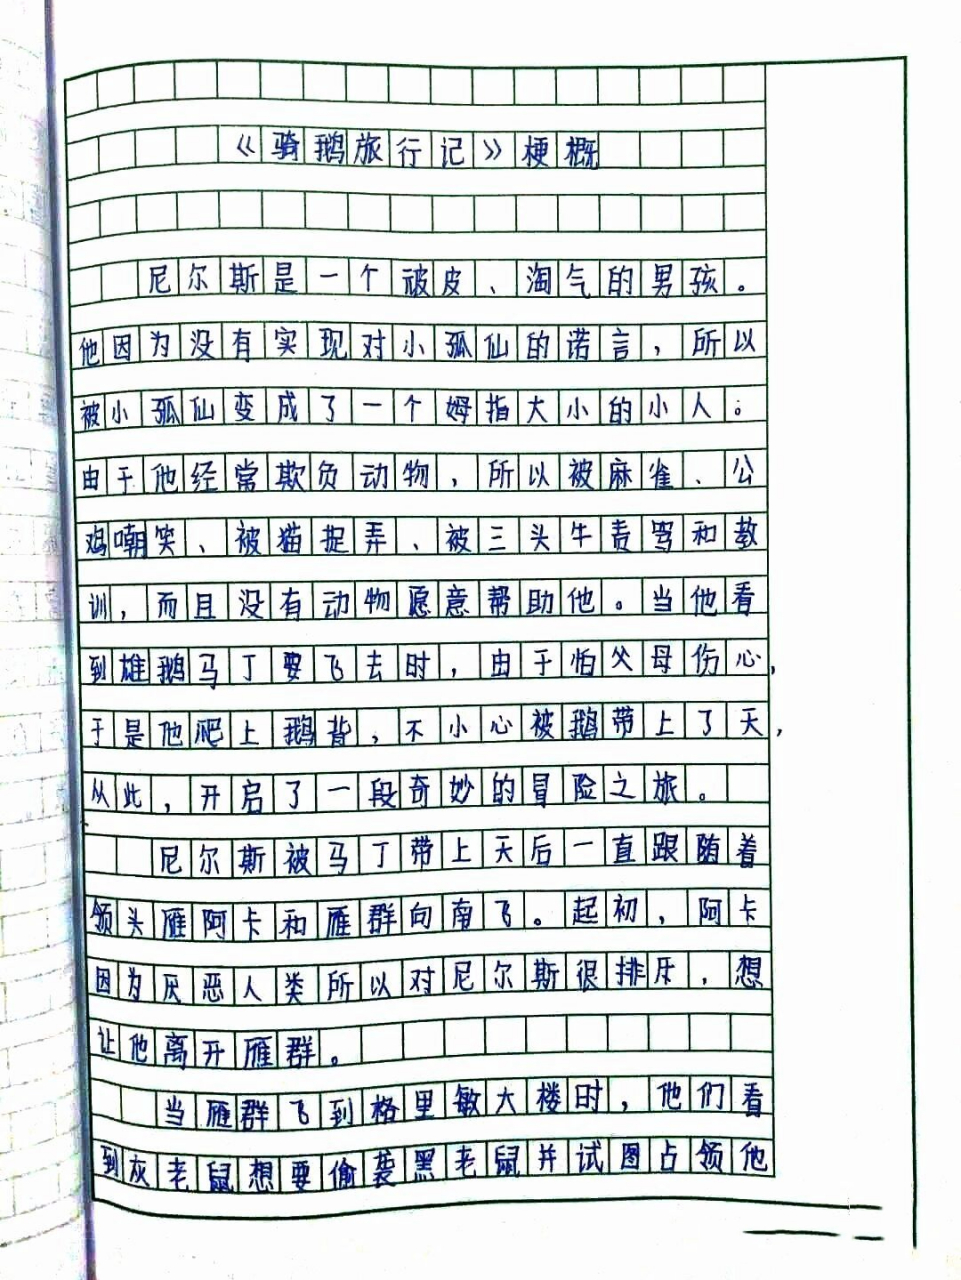 《骑鹅旅行记》梗概
尼尔斯是一个顽皮、淘气的男孩。
他因为没有实现对小孤仙的诺言，所以
被小孤仙变成了一个姆指大小的小人。
由于他经常欺负动物，所以被麻雀、公
鸡嘲笑、被猫捉弄、被三头牛责骂和教
训，而且没有动物愿意帮助他。当他看
到雄鹅马丁要飞去时，由于怕父母伤心，
于是他爬上鹅背，不小心被鹅带上了天，
从此，开启了一段奇妙的冒险之旅。
尼尔斯被马丁带上天后一直跟随着
领头雁阿卡和雁群向南飞。起初，阿卡
因为厌恶人类所以对尼尔斯很排斥，想
让他离开雁群。
当雁群飞到格里敏大楼时，他们看
到灰老鼠想要偷袭黑老鼠并试图占领他